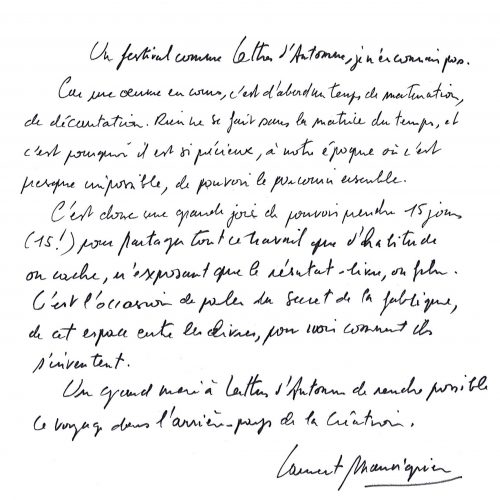 Un festival comme Lettres d'Automne, je n'en connais pas.
Car une œuvre en cours, c'est d'abord un temps de maturation,
de décantation. Rien ne se fait sans la matrice du temps, et
c'est pourquoi il est si précieux, à notre époque où c'est
presque impossible, de pouvoir le parcourir ensemble.
C'est donc une grande joie de pouvoir prendre 15 jours
(15!) pour partager tout ce travail que d'habitude
on cache, n'exposant que le résultat - livre, ou film.
C'est l'occasion de parler du secret de la fabrique,
de cet espace entre les livres, pour voir comment ils
s'inventent.
Un grand merci à Lettres d'Automne de rendre possible
ce voyage dans l'arrière-pays de la création.
Laurent Mauvignier